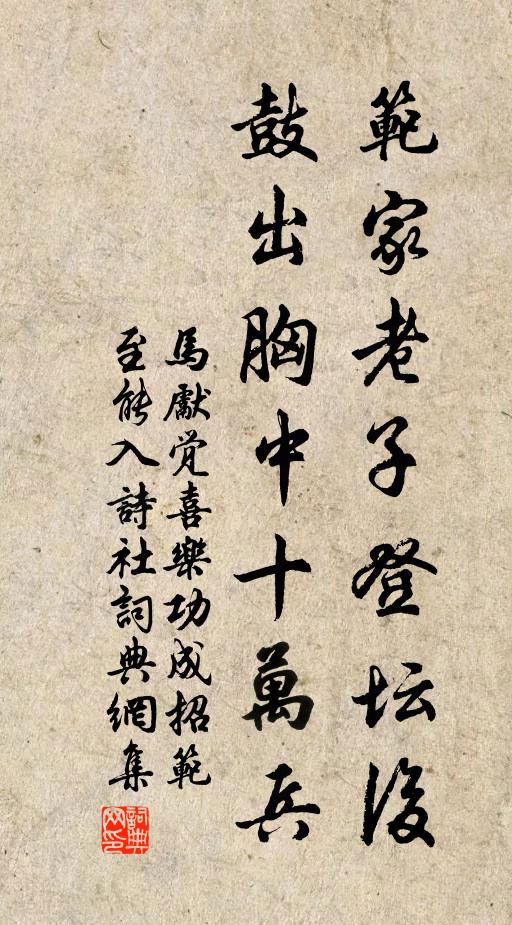 範家老子登坛後
鼓出胸中十萬兵
馬獻觉喜樂功成招範
至能入詩社詞典網集
詞典
网印